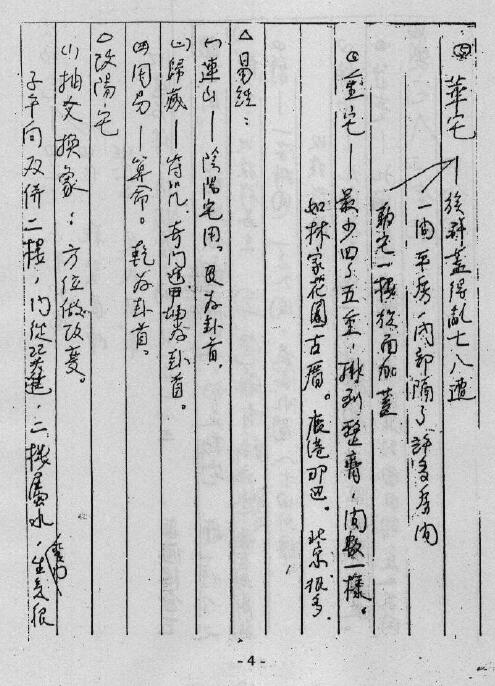 華宅—族群蓋得亂七八遭
一間平房,內部隔了許多房間
動宅一棟後面加蓋
重宅—最少四了五重,排列整齊 間數一樣。
如林家花園古厝。鹿港那边。北京很多.
△易經:
(一)連山—陰陽宅用。艮為卦首.
(二)歸藏—符咒.奇門遁甲坤為卦首。
周易—算命。乾為卦首。
△改陽宅
(1)抽爻換象:方位做改變。
子午向双併二棟,門從 進,二棟屬水,生氣很
- 4 -